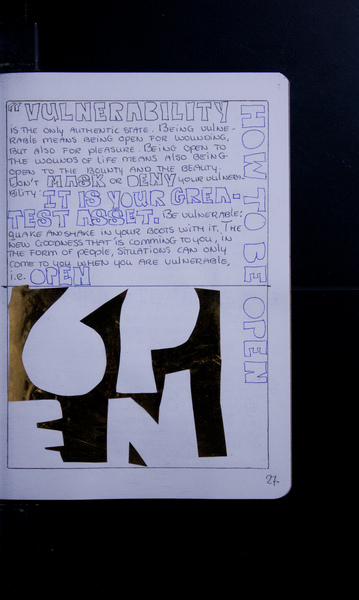 "VULNERABILITY
IS THE ONLY AUTHENTIC STATE. BEING VULNE-
RABLE MEANS BEING OPEN FOR WOUNDING,
BUT ALSO FOR PLEASURE. BEING OPEN TO
THE WOUNDS OF LIFE MEANS ALSO BEING
OPEN TO THE BOUNTY AND THE BEAUTY.
DON'T MASK OR DENY YOUR VULNERA-
BILITY: IT IS YOUR GREA-
TEST ASSET. BE VULNERABLE:
QUAKE AND SHAKE IN YOUR BOOTS WITH IT. THE
NEW GOODNESS THAT IS COMMING TO YOU, IN
THE FORM OF PEOPLE, SITUATIONS CAN ONLY
COME TO YOU WHEN YOU ARE VULNERABLE,
i.e. OPEN
HOW TO BE OPEN
OP
EN
27.